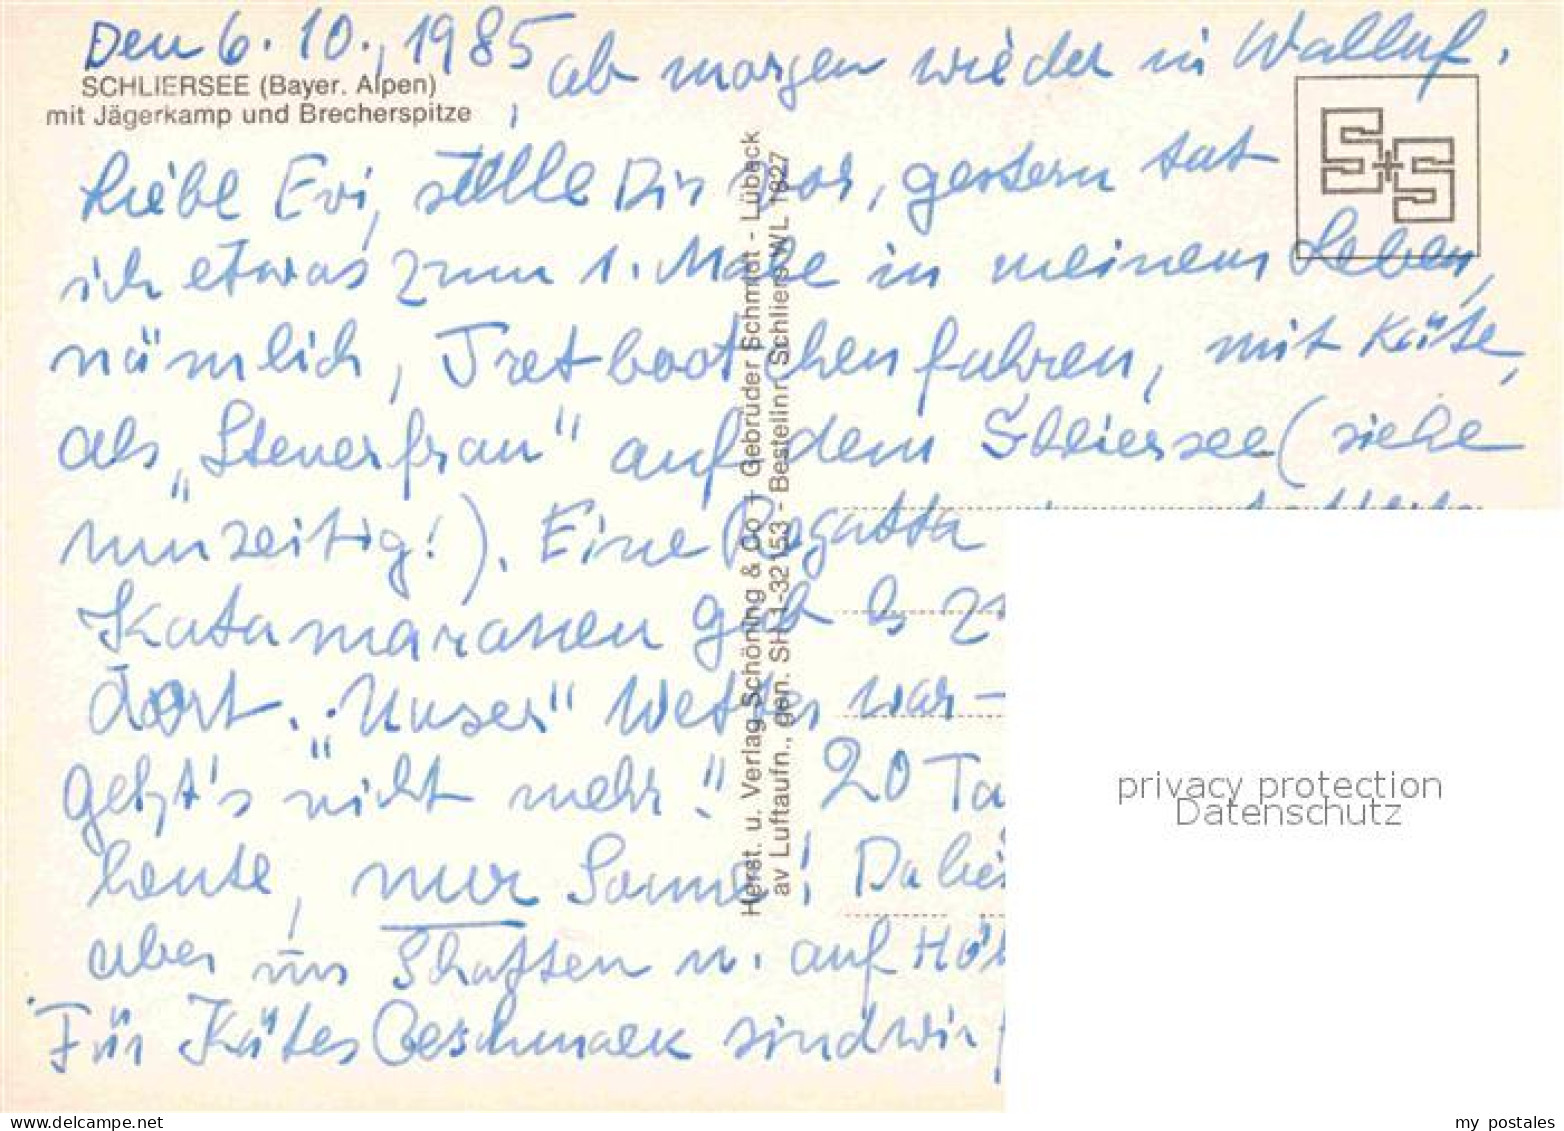 Den 6. 10., 1985, ab morgen wieder in Walluf.
SCHLIERSEE (Bayer. Alpen)
mit Jägerkamp und Brecherspitze
Liebe Evi, stelle Dir vor, gestern tat
ich etwas zum 1. Male in meinem Leben,
nämlich, Tretbootchen fahren, mit Käte,
als „Steuerfrau" auf dem Schliersee (siehe
). Eine Regatta
Katamaranen gab es
dort. „Unser" Wetter war –
geht's nicht mehr"! 20 Ta
heute, nur Sonne! Dabei
aber im Schatten u. auf Hö
Für Kätes Geschmack sind wir
Herst. u. Verlag Schöning & Co + Gebrüder Schmidt - Lübeck
av Luftaufn., gen. SH 1-32 153 - Bestellnr. Schliers WL 1827
S+S
privacy protection
Datenschutz
my postales
www.delcampe.net